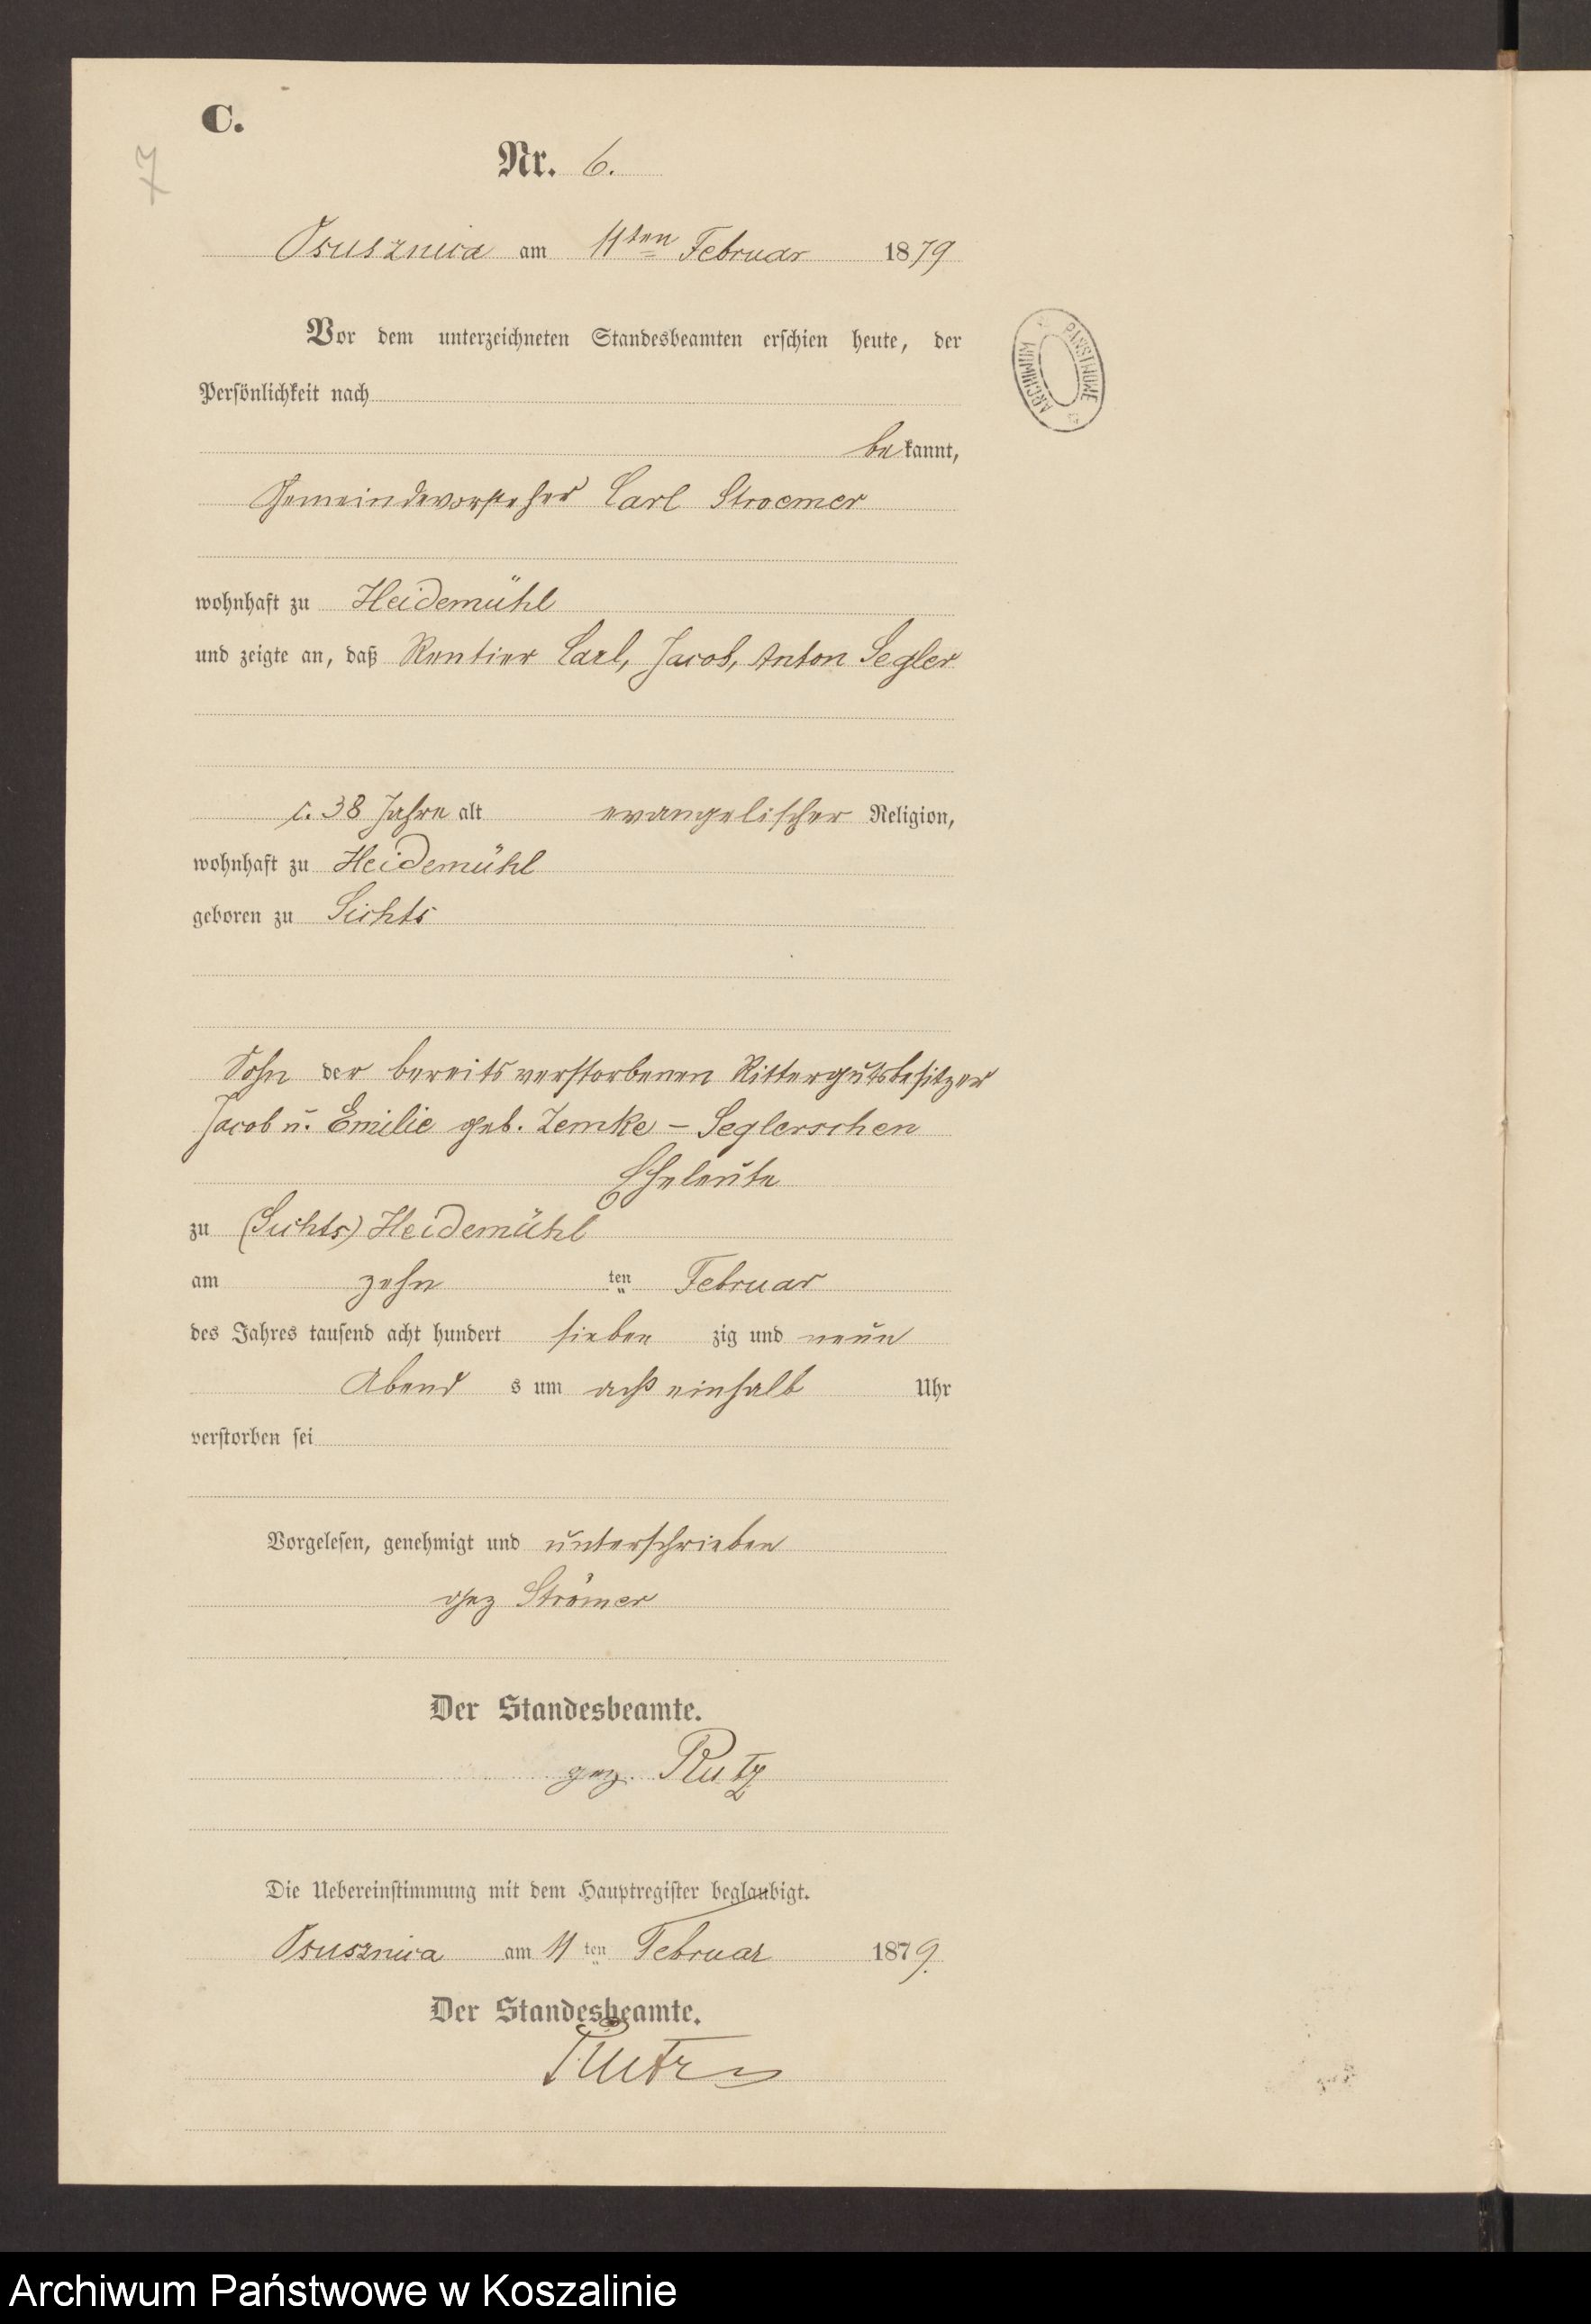 C.
7
Nr. 6.
Osusznica am 11ten Februar 1879
Vor dem unterzeichneten Standesbeamten erschien heute, der
Persönlichkeit nach
bekannt,
Gemeindevorsteher Carl Stroemer
ARCHIWUM PAŃSTWOWE
wohnhaft zu Heidemühl
und zeigte an, daß Rentier Carl, Jacob, Anton Segler
c. 38 Jahre alt evangelischer Religion,
wohnhaft zu Heidemühl
geboren zu Lichts
Sohn der bereits verstorbenen Rittergutsbesitzer
Jacob u. Emilie geb. Zemke – Seglerschen
Eheleute
zu (Lichts) Heidemühl
am zehn ten Februar
des Jahres tausend acht hundert sieben zig und neun
Abend s um acht einhalb Uhr
verstorben sei
Vorgelesen, genehmigt und unterschrieben
gez Strömer
Der Standesbeamte.
gez. Rutz
Die Uebereinstimmung mit dem Hauptregister beglaubigt.
Osusznica am 11 ten Februar 1879.
Der Standesbeamte.
Rutz
Archiwum Państwowe w Koszalinie